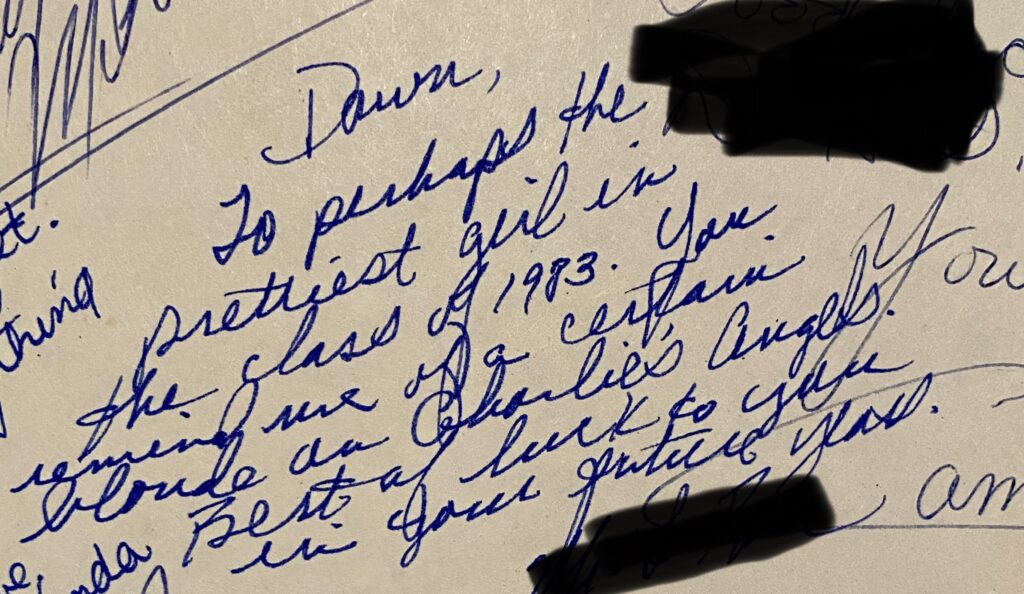 Dawn,
To perhaps the
prettiest girl in
the class of 1983. You
remind me of a certain
blonde on Charlie's Angels.
Best of luck to you
in your future years.
You
am